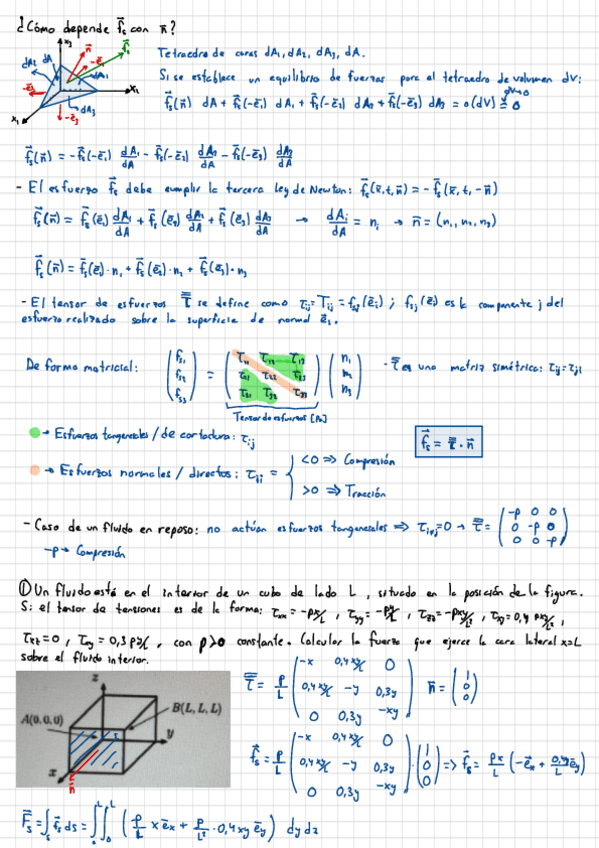 ¿Cómo depende f⃗s con n⃗?
x3
dA2 dA
n⃗
f⃗s
-e⃗1
dA1
-e⃗2
x2
dA3
x1
-e⃗3
Tetraedro de caras dA1, dA2, dA3, dA.
Si se establece un equilibrio de fuerzas para el tetraedro de volumen dV:
f⃗s(n⃗) dA + f⃗s(-e⃗1) dA1 + f⃗s(-e⃗2) dA2 + f⃗s(-e⃗3) dA3 = o(dV) = 0
dV→0
f⃗s(n⃗) = -f⃗s(-e⃗1) dA1/dA - f⃗s(-e⃗2) dA2/dA - f⃗s(-e⃗3) dA3/dA
- El esfuerzo f⃗s debe cumplir la tercera ley de Newton: f⃗s(x̄, t, n⃗) = - f⃗s(x̄, t, -n⃗)
f⃗s(n⃗) = f⃗s(e⃗1) dA1/dA + f⃗s(e⃗2) dA2/dA + f⃗s(e⃗3) dA3/dA → dAi/dA = ni → n̄ = (n1, n2, n3)
f⃗s(n⃗) = f⃗s(e⃗1)·n1 + f⃗s(e⃗2)·n2 + f⃗s(e⃗3)·n3
- El tensor de esfuerzos τ̿ se define como τij = Tij = fsj(ēi) ; fsj(ēi) es la componente j del
esfuerzo realizado sobre la superficie de normal e⃗i.
De forma matricial:
fs1 = τ11 τ12 τ13 n1
fs2 τ21 τ22 τ23 n2
fs3 τ31 τ32 τ33 n3
· τ̿ es una matriz simétrica: τij = τji
Tensor de esfuerzos [Pa]
→ Esfuerzos tangenciales / de cortadura: τij
f⃗s = τ̿ · n⃗
→ Esfuerzos normales / directos: τii =
<0 ⇒ Compresión
>0 ⇒ Tracción
- Caso de un fluido en reposo: no actúan esfuerzos tangenciales ⇒ τi≠j = 0 → τ̿ =
-p 0 0
0 -p 0
0 0 -p
-p → Compresión
① Un fluido está en el interior de un cubo de lado L, situado en la posición de la figura.
Si el tensor de tensiones es de la forma: τxx = -px/L , τyy = -py/L , τzz = -pxy/L² , τxy = 0,4 pxy/L² ,
τxz = 0 , τzy = 0,3 py/L , con p>0 constante. Calcular la fuerza que ejerce la cara lateral x=L
sobre el fluido interior.
z
A(0, 0, 0)
B(L, L, L)
y
x
n̄
τ̿ = p/L
-x 0,4xy/L 0
0,4xy/L -y 0,3y
0 0,3y -xy/L
n̄ =
1
0
0
f⃗s = p/L
-x 0,4xy/L 0
0,4xy/L -y 0,3y
0 0,3y -xy/L
·
1
0
0
⇒ f⃗s = px/L (-e⃗x + 0,4y/L e⃗y)
F⃗s = ∫s f⃗s ds = ∫0L ∫0L (p/L x ēx + p/L² · 0,4xy ēy) dy dz